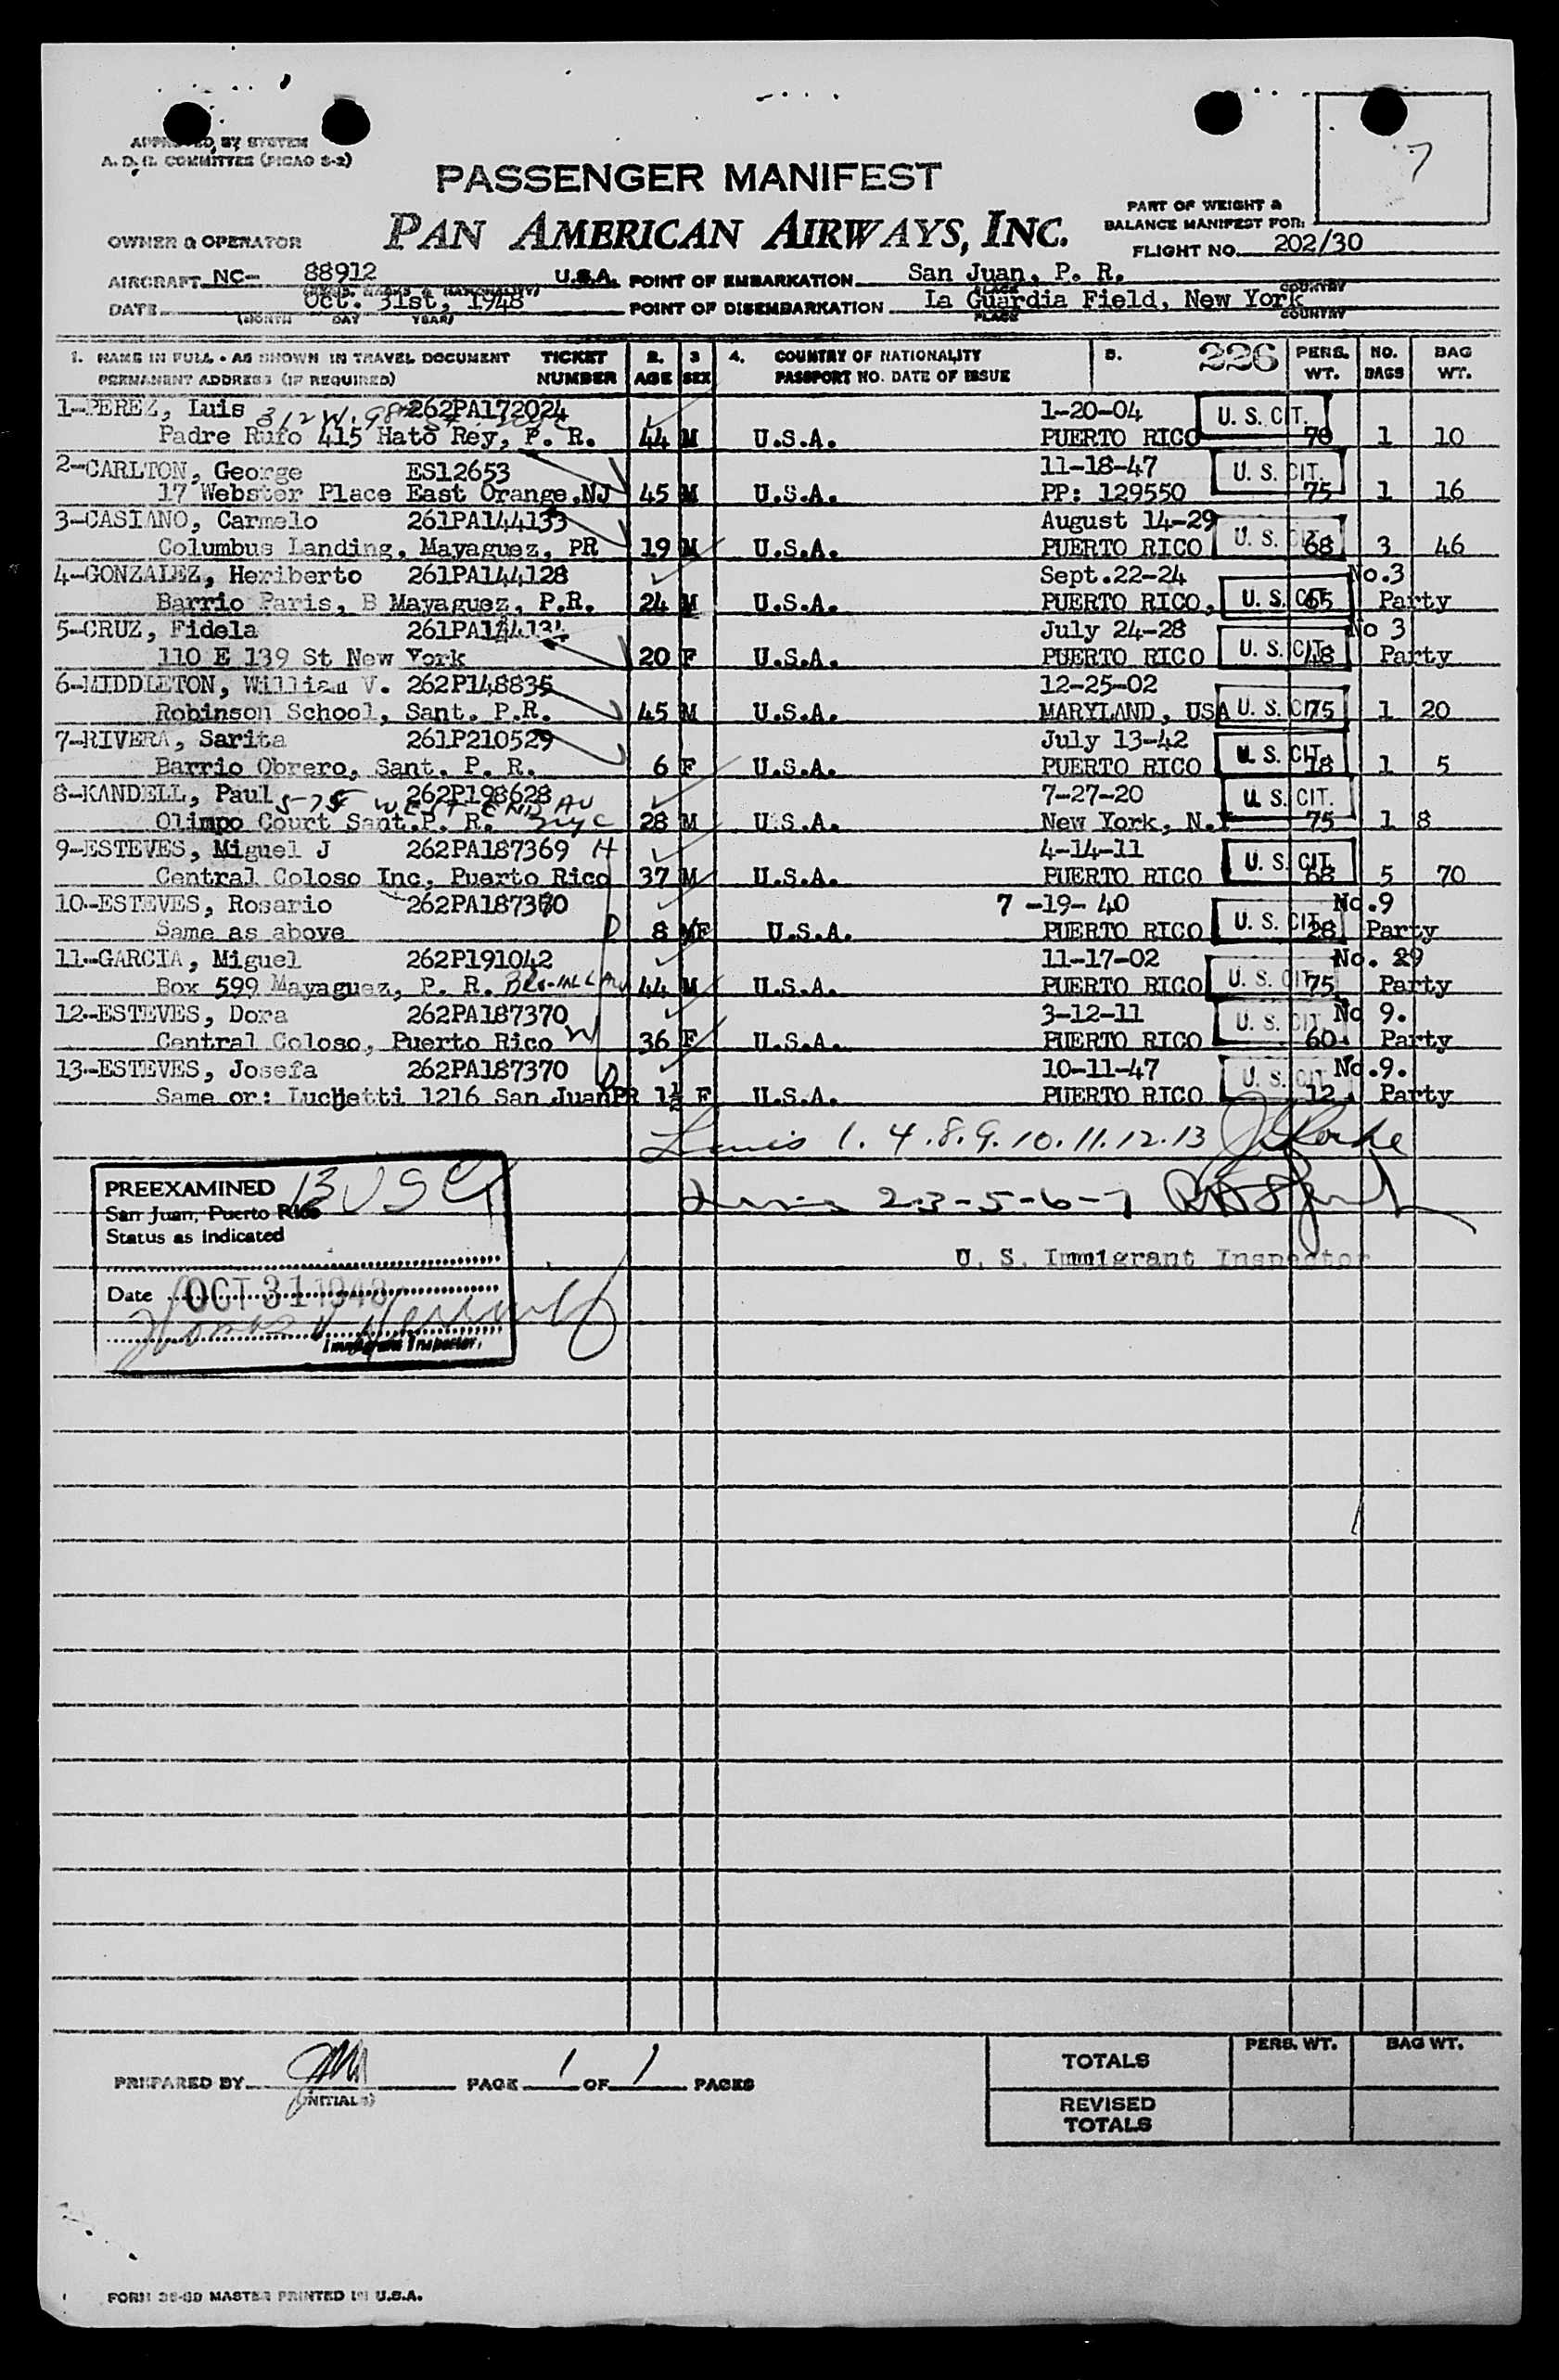 7
APPROVED BY SYSTEM
A. D. R. COMMITTEE (PICAO S-2)
PASSENGER MANIFEST
PAN AMERICAN AIRWAYS, INC.
PART OF WEIGHT &
BALANCE MANIFEST FOR:
OWNER & OPERATOR
FLIGHT NO. 202/30
AIRCRAFT NC- 88912 U.S.A. POINT OF EMBARKATION San Juan, P. R.
PLACE COUNTRY
DATE Oct. 31st, 1948 POINT OF DISEMBARKATION La Guardia Field, New York
(MONTH DAY YEAR) PLACE COUNTRY
1. NAME IN FULL - AS SHOWN IN TRAVEL DOCUMENT TICKET 2. 3 4. COUNTRY OF NATIONALITY 5. 226 PERS. NO. BAG
PERMANENT ADDRESS (IF REQUIRED) NUMBER AGE SEX PASSPORT NO. DATE OF ISSUE WT. BAGS WT.
1-PEREZ, Luis 312 W. 98 St 262PA172024 1-20-04 U. S. CIT.
Padre Rufo 415 Hato Rey, P. R. 44 M U.S.A. PUERTO RICO 70 1 10
2-CARLTON, George ES12653 11-18-47 U. S. CIT.
17 Webster Place East Orange,NJ 45 M U.S.A. PP: 129550 75 1 16
3-CASIANO, Carmelo 261PA144133 August 14-29 U. S. CIT.
Columbus Landing, Mayaguez, PR 19 M U.S.A. PUERTO RICO 68 3 46
4-GONZALEZ, Heriberto 261PA144128 Sept.22-24 No.3
Barrio Paris, B Mayaguez, P.R. 24 M U.S.A. PUERTO RICO, U. S. CIT. 65 Party
5-CRUZ, Fidela 261PA144134 July 24-28 No 3
110 E 139 St New York 20 F U.S.A. PUERTO RICO U. S. CIT. 48 Party
6-MIDDLETON, William V. 262P148835 12-25-02
Robinson School, Sant. P.R. 45 M U.S.A. MARYLAND, USA U. S. CIT. 75 1 20
7-RIVERA, Sarita 261P210529 July 13-42 U. S. CIT.
Barrio Obrero, Sant. P. R. 6 F U.S.A. PUERTO RICO 18 1 5
8-KANDELL, Paul 575 WEST END AV 262P198628 7-27-20 U. S. CIT.
Olimpo Court Sant.P. R. NYC 28 M U.S.A. New York, N.Y 75 1 8
9-ESTEVES, Miguel J 262PA187369 H 4-14-11 U. S. CIT.
Central Coloso Inc, Puerto Rico 37 M U.S.A. PUERTO RICO 68 5 70
10-ESTEVES, Rosario 262PA187370 7 -19- 40 No.9
Same as above D 8 F U.S.A. PUERTO RICO U. S. CIT. 28 Party
11-GARCIA, Miguel 262P191042 11-17-02 No. 29
Box 599 Mayaguez, P. R. 44 M U.S.A. PUERTO RICO U. S. CIT. 75 Party
12-ESTEVES, Dora 262PA187370 3-12-11 No 9.
Central Coloso, Puerto Rico W 36 F U.S.A. PUERTO RICO U. S. CIT. 60 Party
13-ESTEVES, Josefa 262PA187370 10-11-47 No.9.
Same or: Luchetti 1216 San JuanPR D 1½ F U.S.A. PUERTO RICO U. S. CIT. 12 Party
1. 4. 8. 9. 10. 11. 12. 13
PREEXAMINED 13 USC
San Juan, Puerto Rico
Status as indicated
2-3-5-6-7
U. S. Immigrant Inspector
Date OCT 31 1948
Immigrant Inspector.
PREPARED BY (INITIALS) PAGE 1 OF 1 PAGES
TOTALS PERS. WT. BAG WT.
REVISED
TOTALS
FORM 36-GD MASTER PRINTED IN U.S.A.